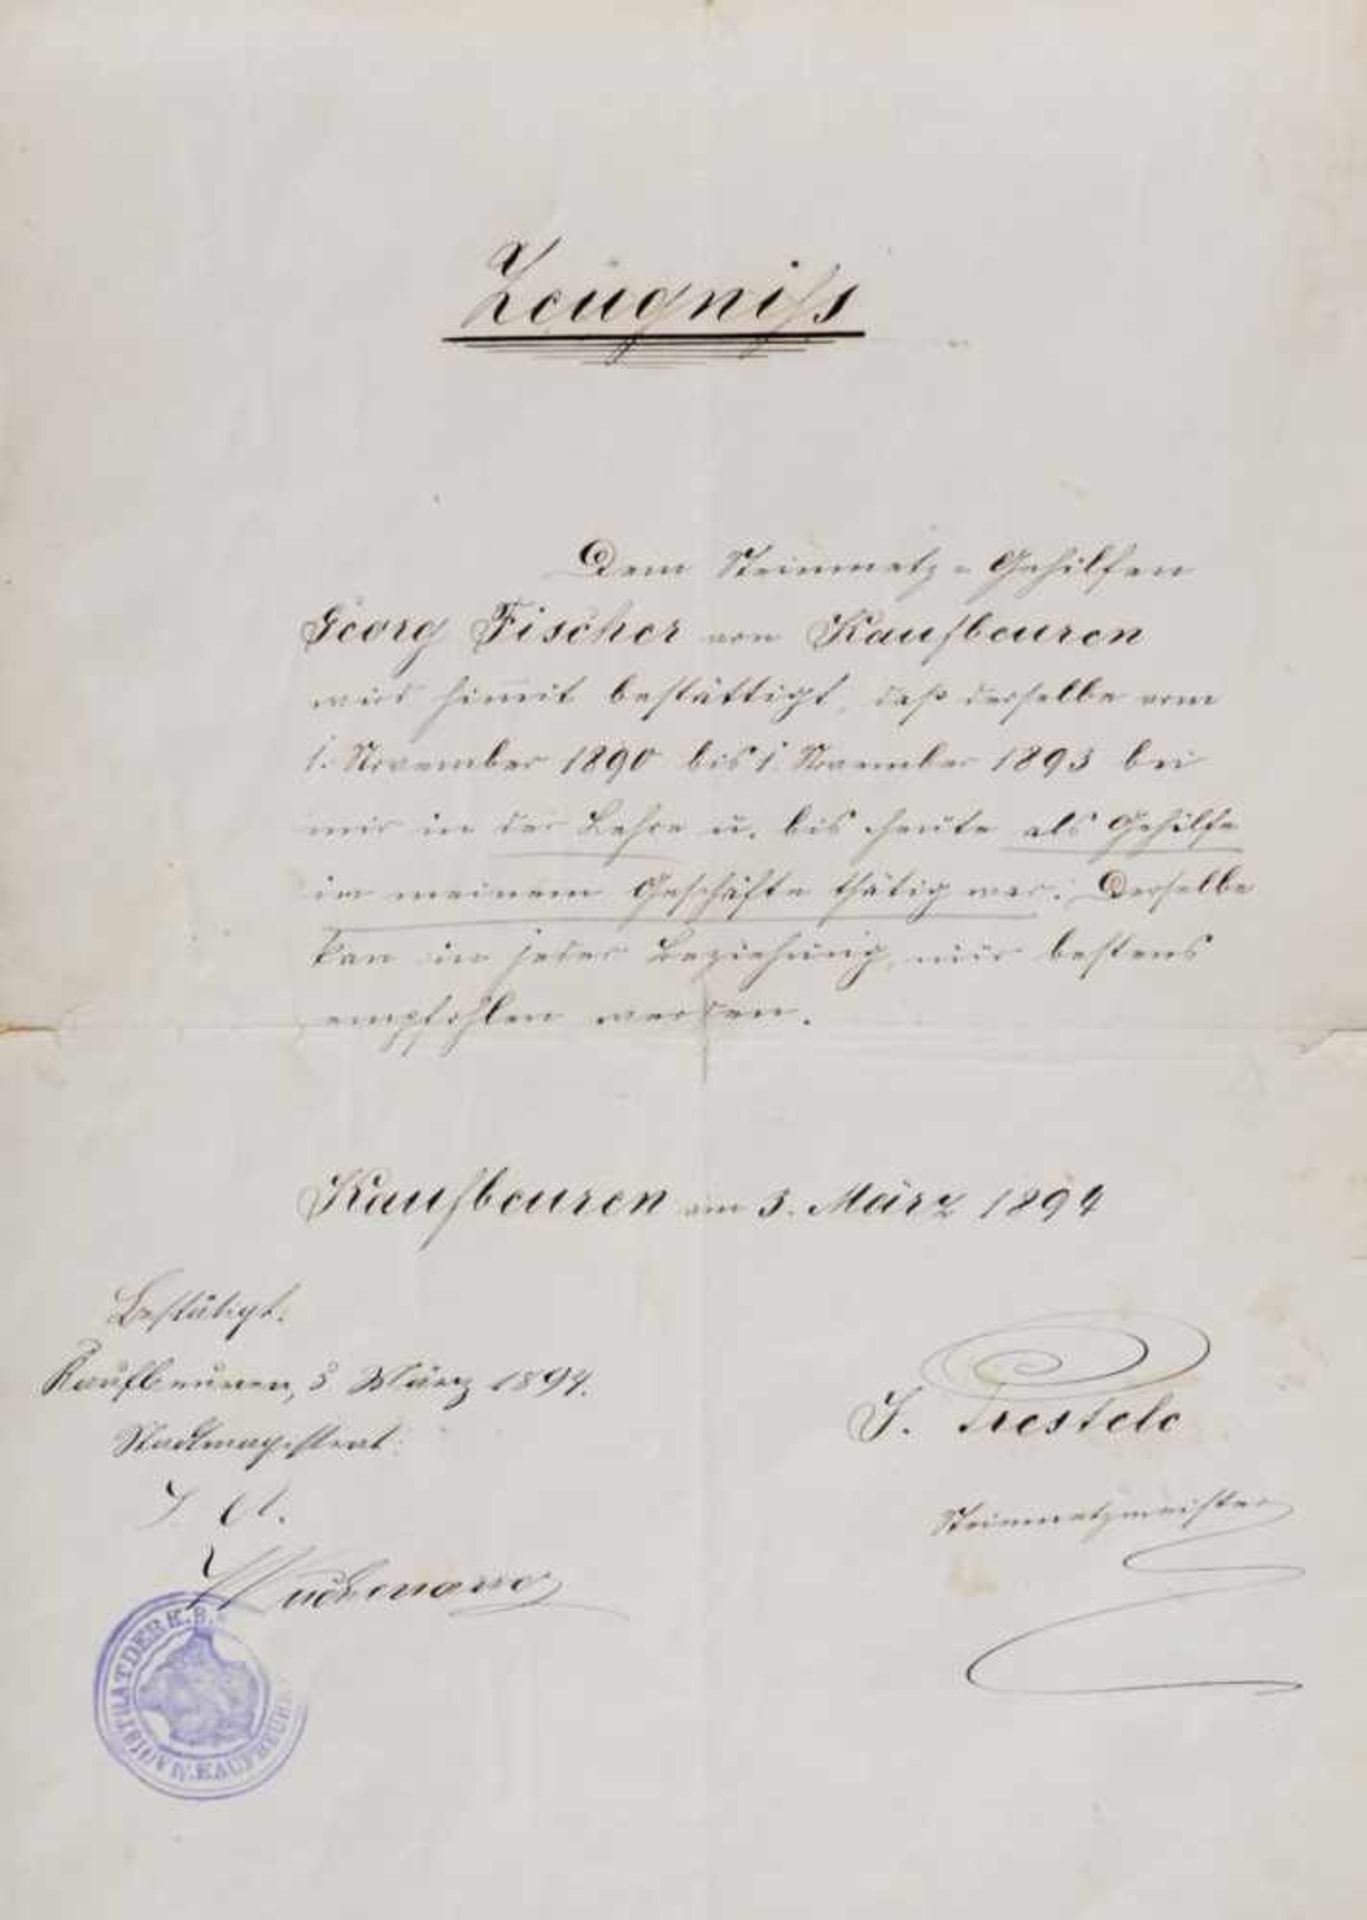 Zeugniss
Dem Steinmetz-Gehilfen
Georg Fischer von Kaufbeuren
wird hiemit bestättigt, daß derselbe vom
1. November 1890 bis 1. November 1893 bei
mir in der Lehre u. bis heute als Gehilfe
in meinem Geschäfte thätig war. Derselbe
kan in jeder Beziehung nur bestens
empfohlen werden.
Kaufbeuren am 3. März 1894
Bestätigt.
Kaufbeuren, 3 März 1894.
Stadtmagistrat.
J. Prestele
Steinmetzmeister
MAGISTRAT DER K.B. KAUFBEUREN